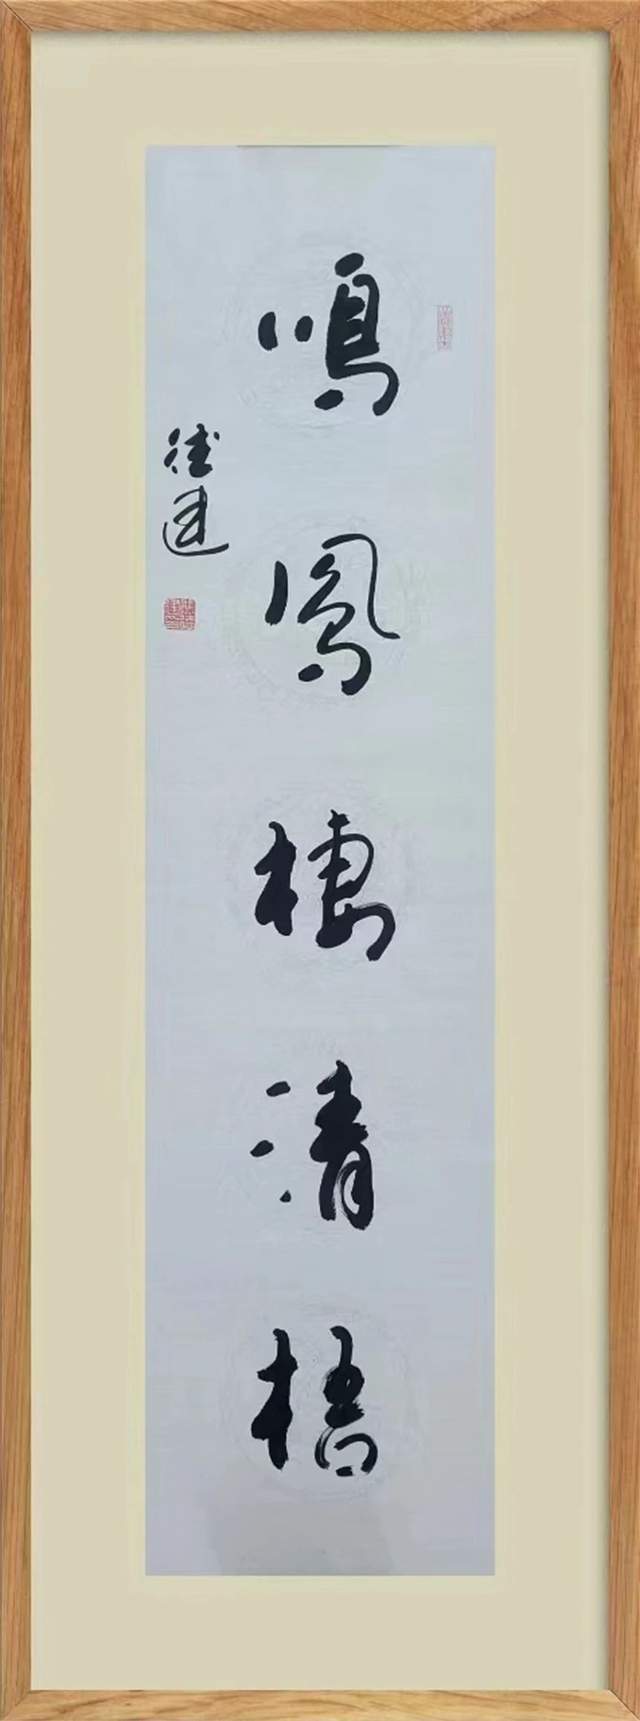 鳴鳳棲清梧
德建